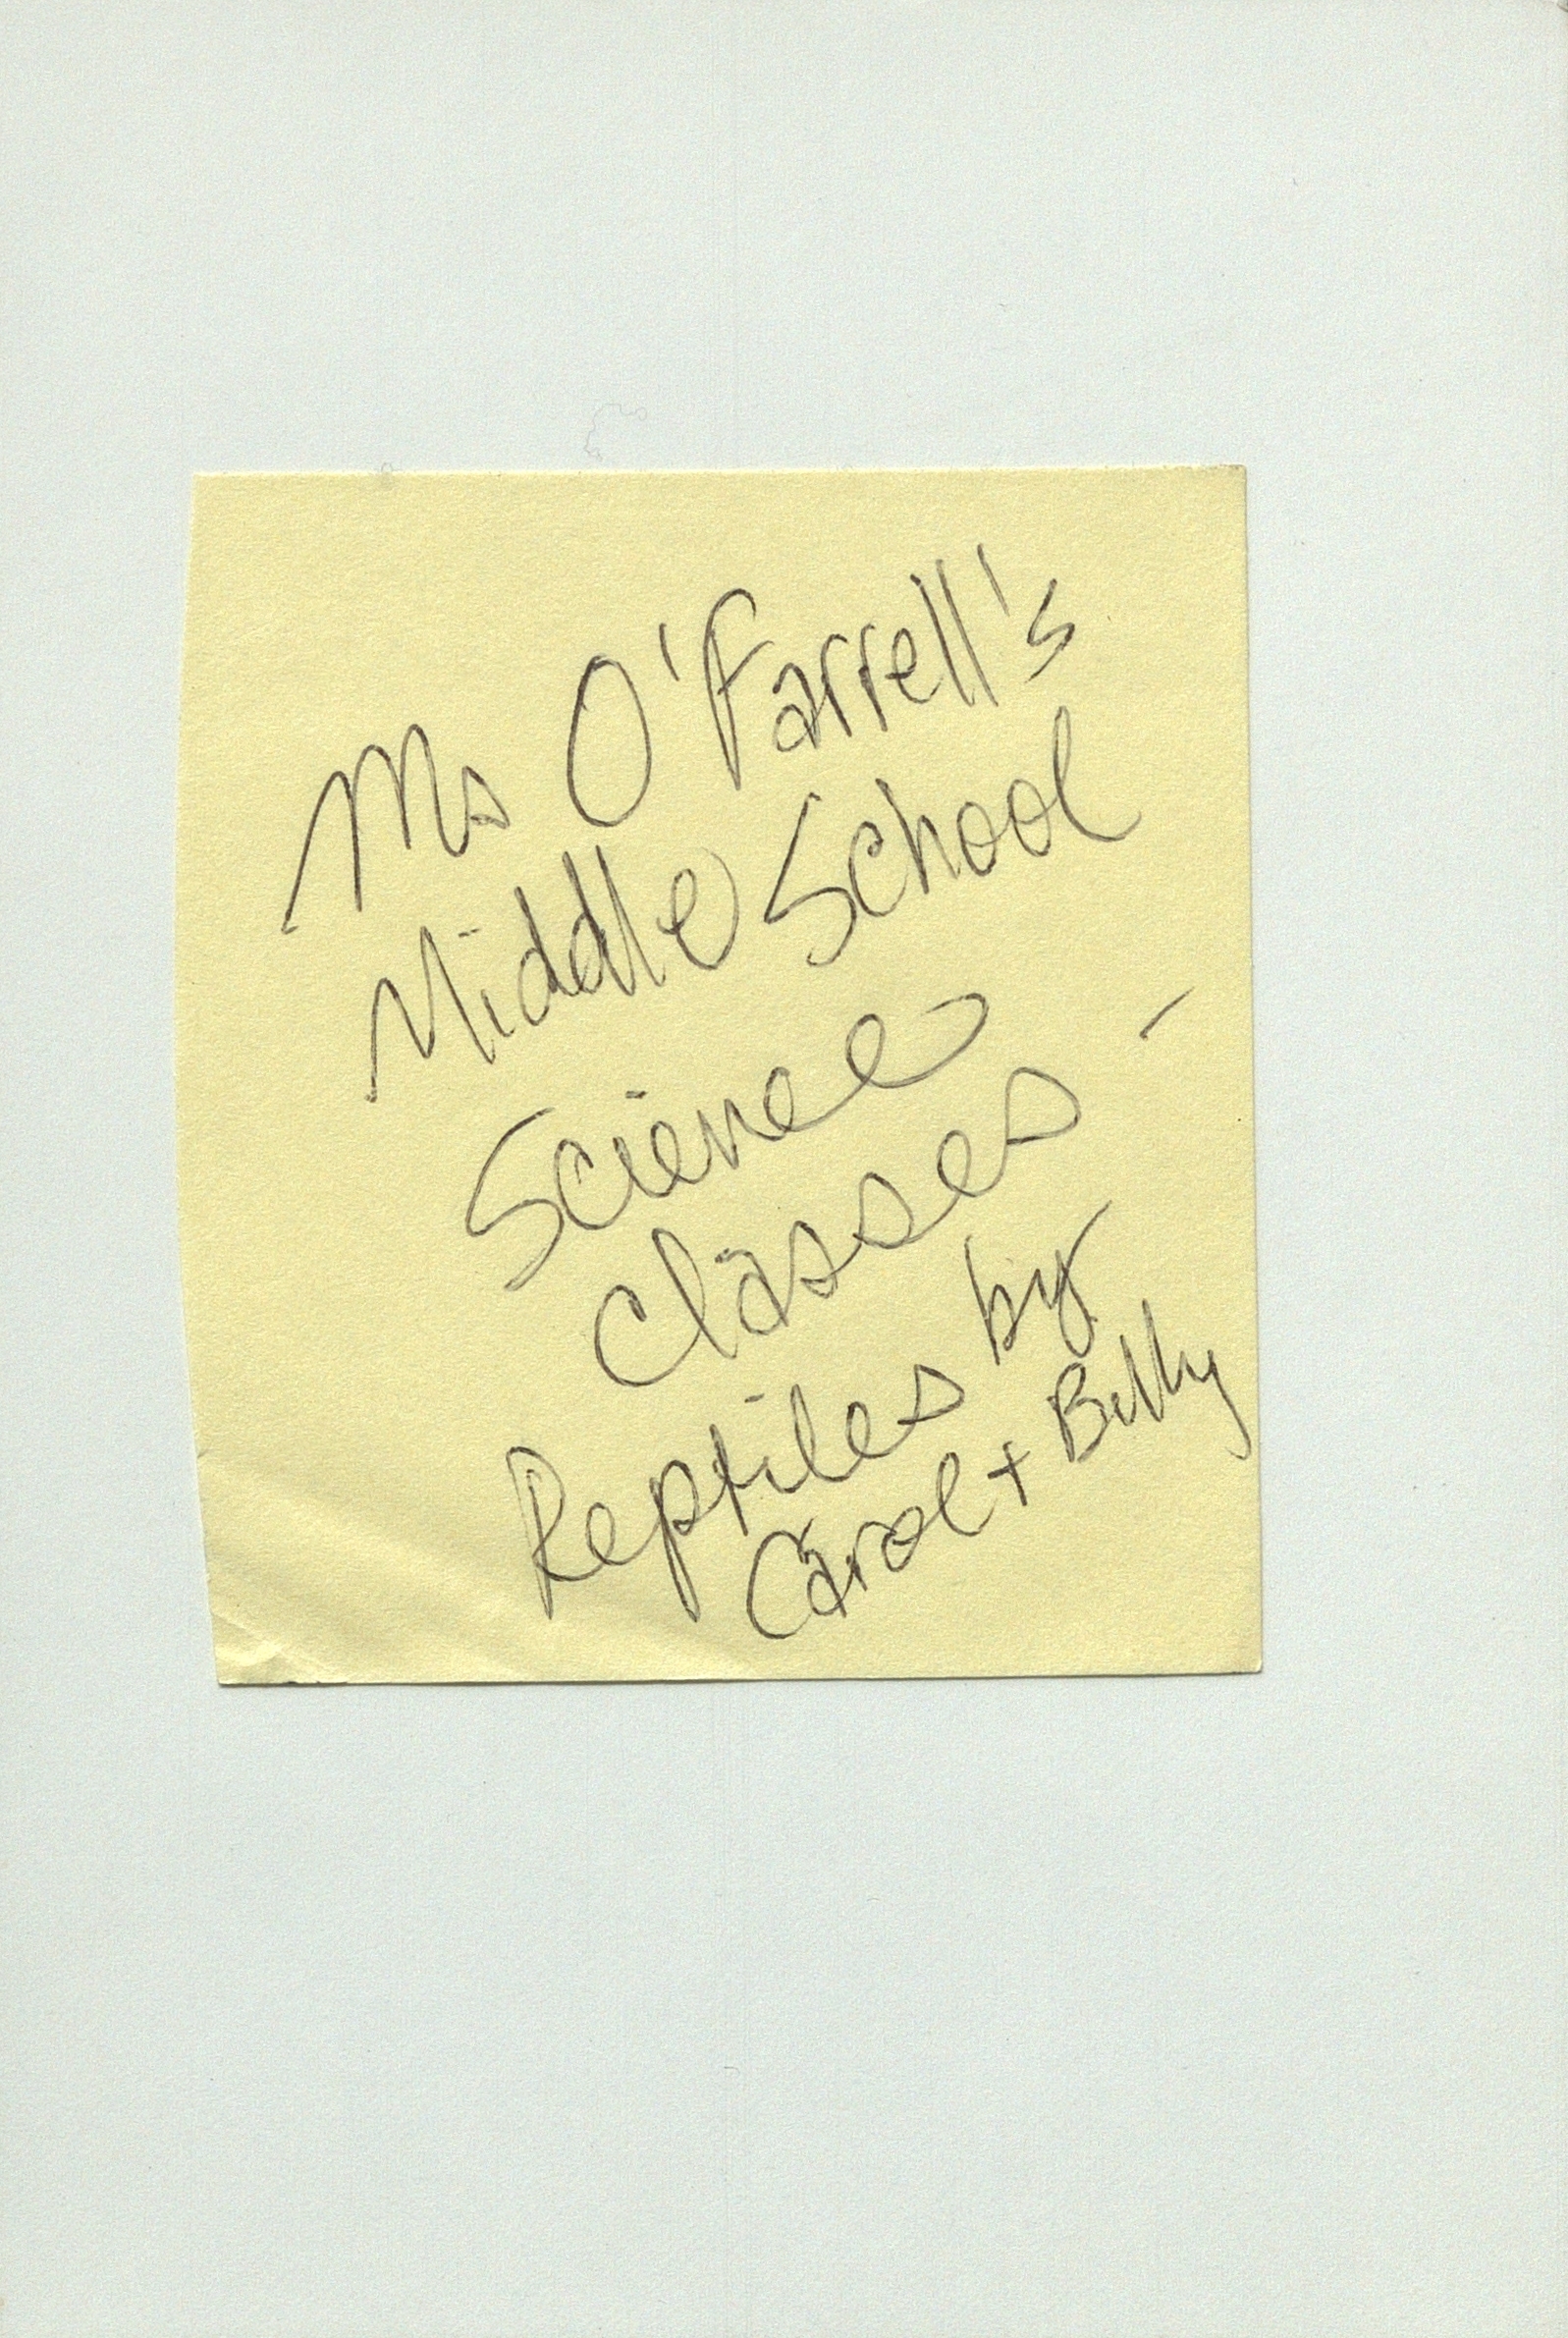 Ms O'Farrell's
Middle School
Science
Classes -
Reptiles by
Carol + Billy